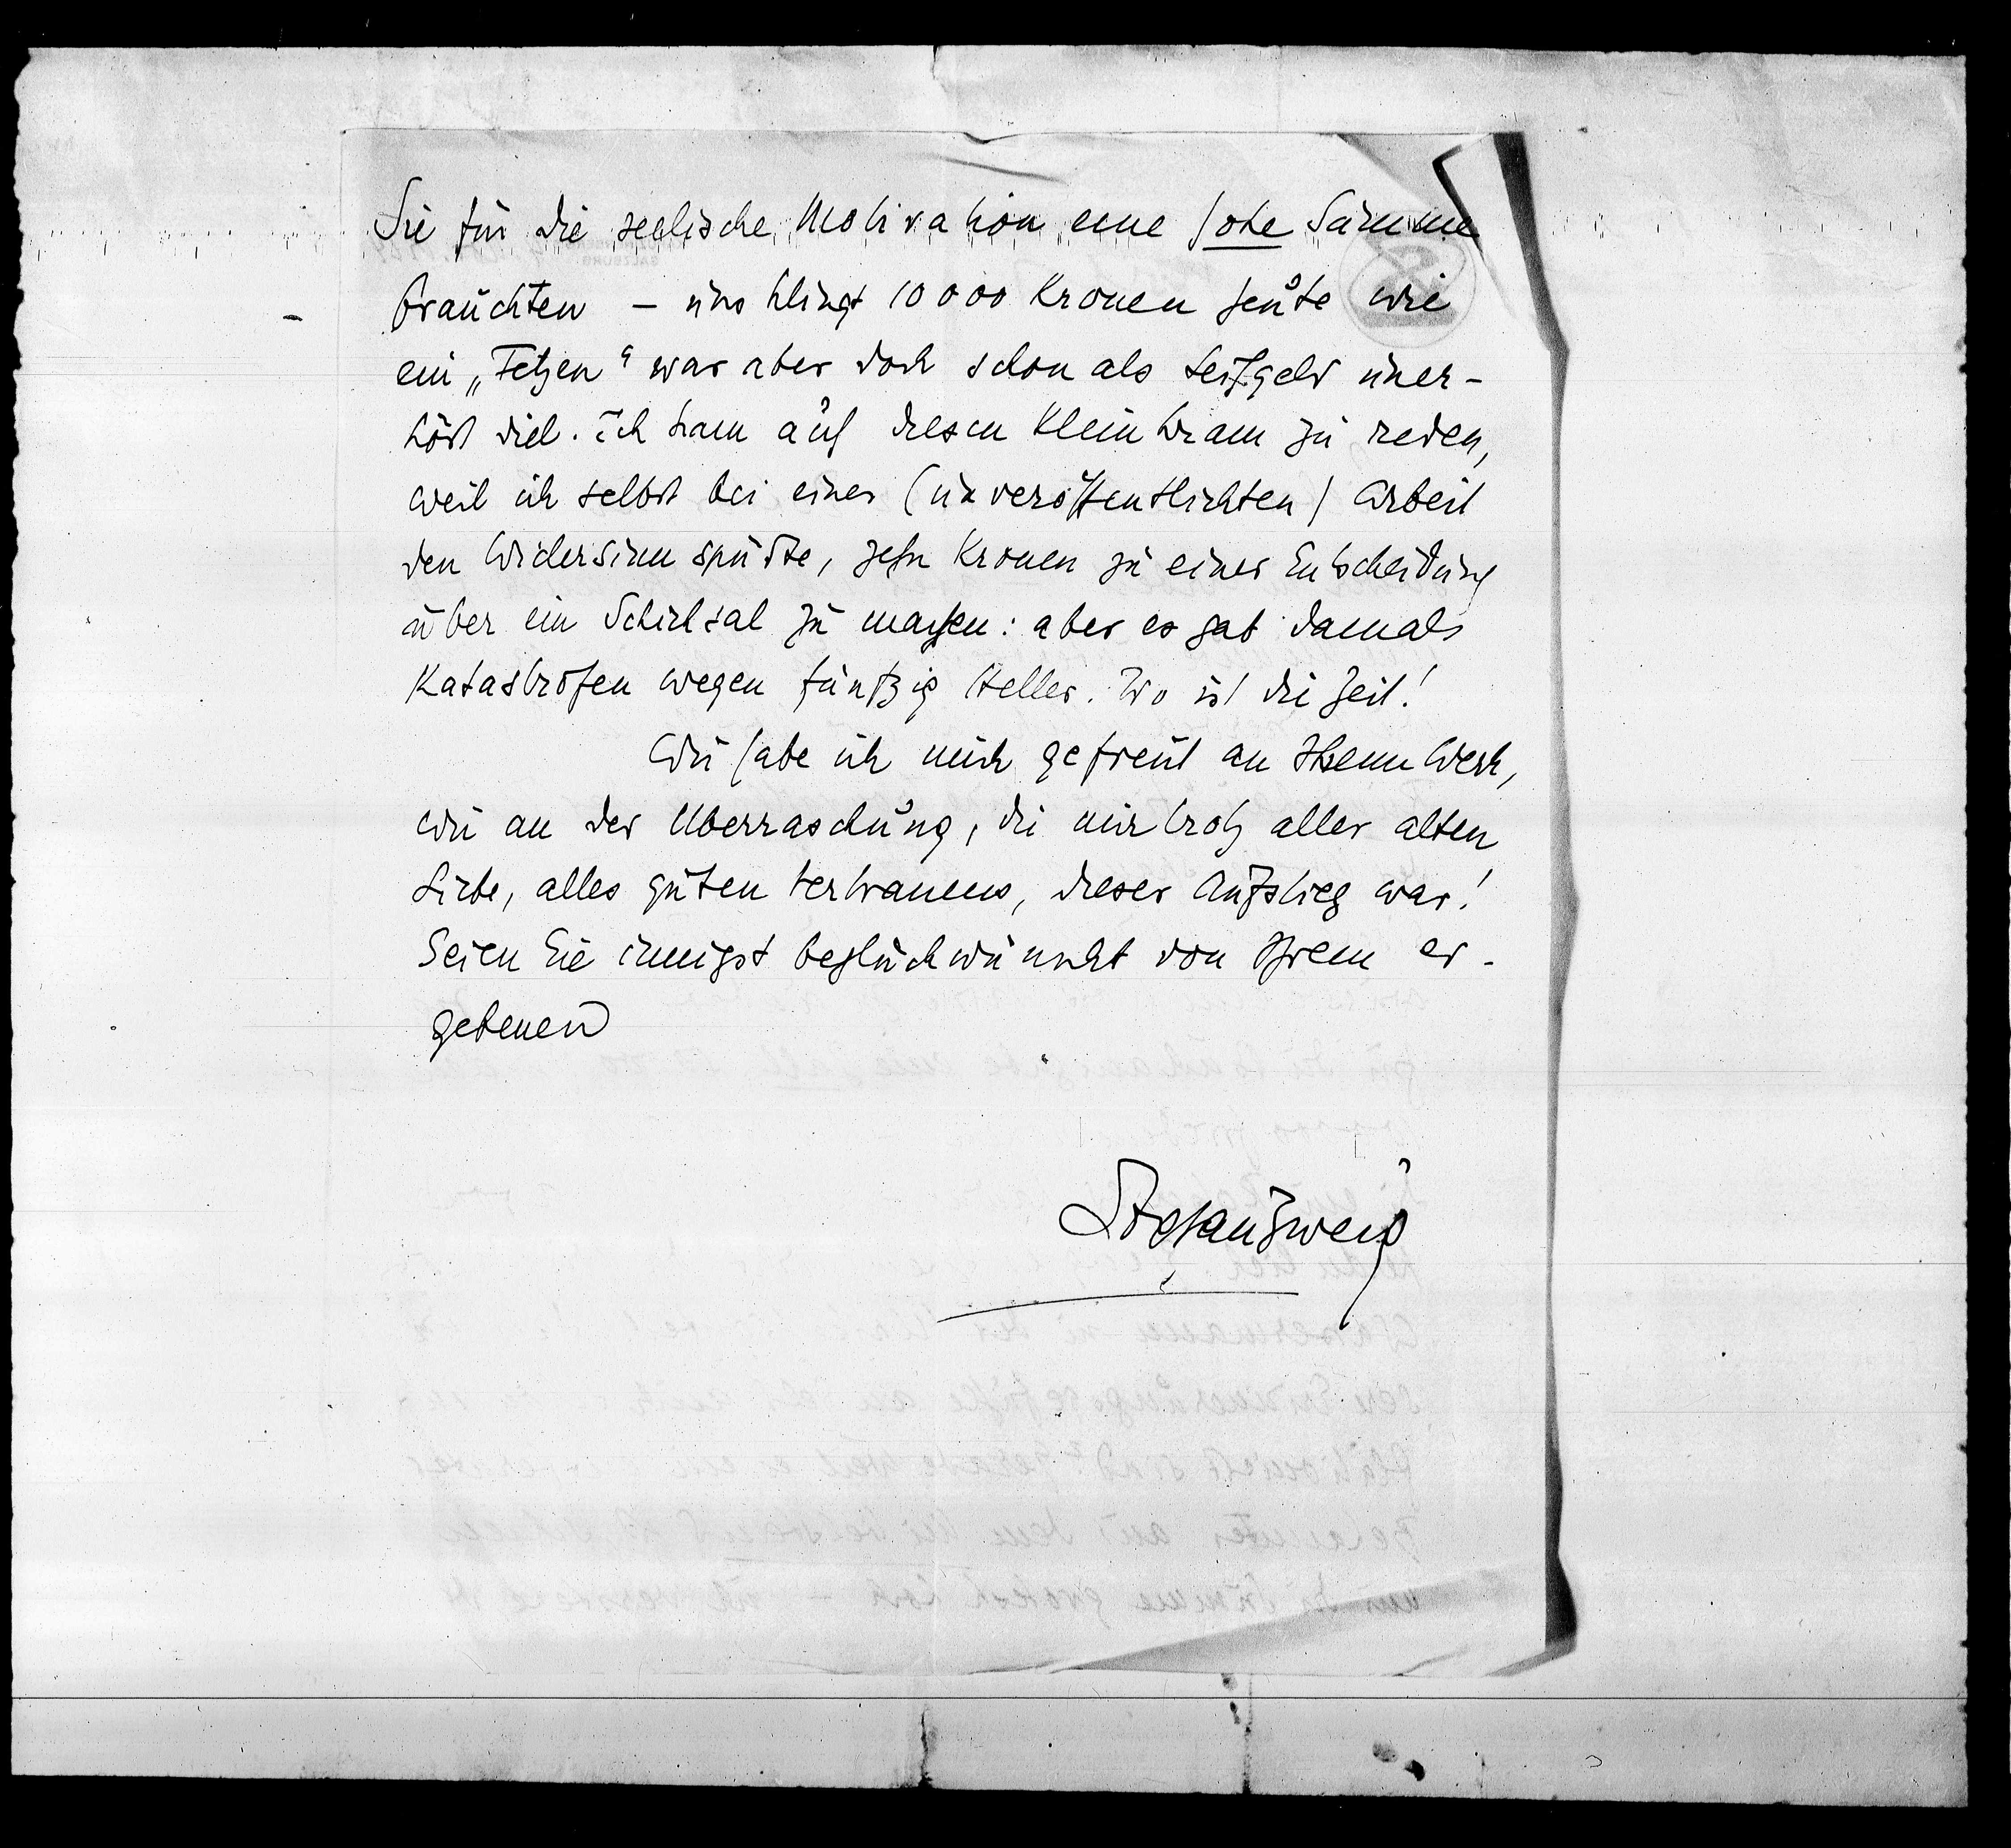 Sie für die seelische Motivation eine hohe Summe
brauchten – uns klingt 10000 Kronen heute wie
ein „Fetzen“ war aber doch schon als Leihgeld uner-
hört viel. Ich kam auf diesen Kleinkram zu reden,
weil ich selbst bei einer (unveröffentlichten) Arbeit
den Widersinn spürte, zehn Kronen zu einer Entscheidung
über ein Schicksal zu machen: aber es gab damals
Katastrofen wegen fünfzig Heller. Wo ist die Zeit!
Wie habe ich mich gefreut an Ihrem Werk,
wie an der Überraschung, die mir trotz aller alten
Liebe, alles guten Vertrauens, dieser Aufstieg war!
Seien Sie innigst beglückwünscht von Ihrem er-
gebenen
Stefan Zweig